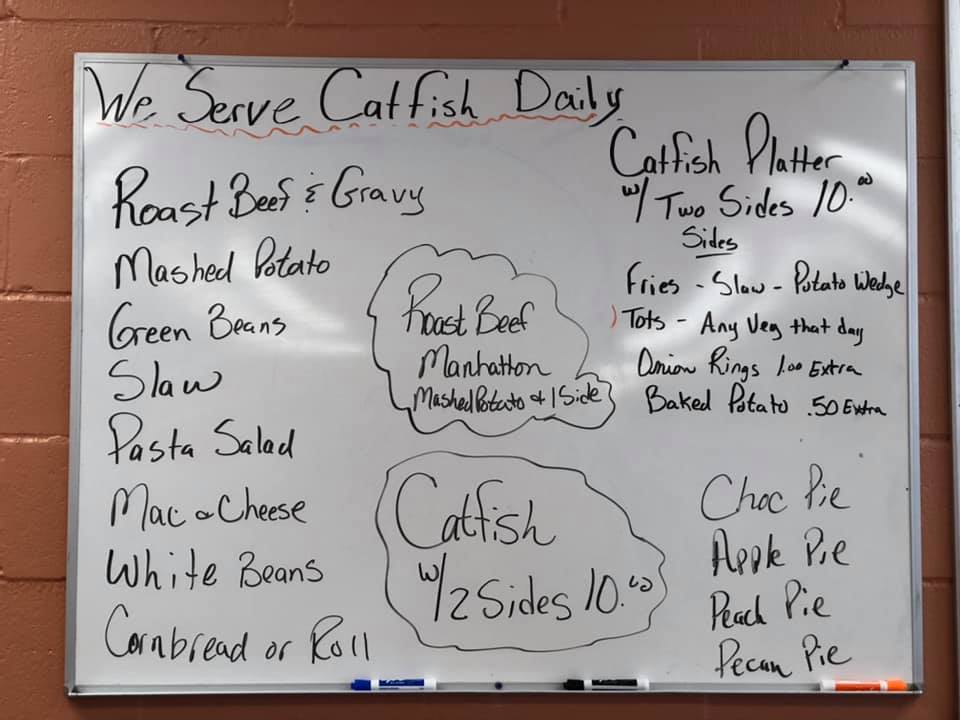 We Serve Catfish Daily
Roast Beef & Gravy
Mashed Potato
Green Beans
Slaw
Pasta Salad
Mac & Cheese
White Beans
Cornbread or Roll
Roast Beef
Manhatton
Mashed Potato & 1 Side
Catfish
w/2 Sides 10.00
Catfish Platter
w/ Two Sides 10.00
Sides
Fries - Slaw - Potato Wedge
Tots - Any Veg that day
Onion Rings 1.00 Extra
Baked Potato .50 Extra
Choc Pie
Apple Pie
Peach Pie
Pecan Pie